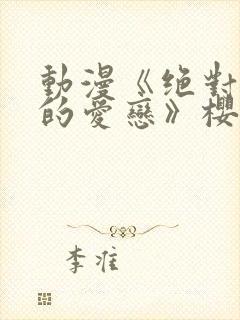 動漫《绝對
的愛戀》櫻
李准